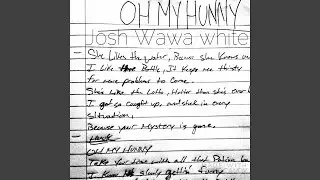 OH MY HUNNY
Josh Wawa white
- She Likes the water, Because she knows
I Like the Bottle, It Keeps me thirsty
for more problems to come.
She's Like the Lotto, Hotter than she's ever
I get so caught up, and stuck in every
situation,
Because your Mystery is gone.
- Hook
OH MY HUNNY
Take your time with all that
I Know it's slowly gettin' funny